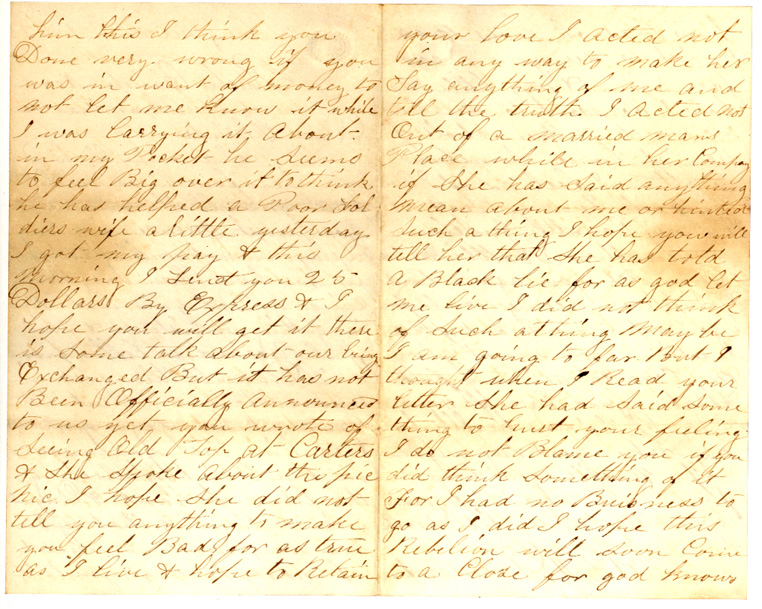 him this I think you
Done very wrong if you
was in want of money to
not let me know it while
I was Carrying it About
in my Pocket he seems
to feel Big over it to think
he has helped a Poor Sol
diers wife a little yesterday
I got my pay & this
morning I Sent you 25
Dollars By Express & I
hope you will get it there
is some talk about our being
Exchanged But it has not
Been Officially Announced
to us yet, you wrote of
seeing Old Top at Carters
& She Spoke about the pic
nic I hope She did not
tell you anything to make
you feel Bad, for as true
as I live & hope to Retain
your love I acted not
in any way to make her
Say anything of me and
tell the truth I acted not
Out of a married mans
Place while in her Company
if She has Said anything
mean about me or hinted
Such a thing I hope you will
tell her that She has told
a Black lie for as god let
me live I did not think
of Such a thing May be
I am going to far But I
thought when I Read your
letter She had Said Some
thing to hurt your feelings
I do not Blame you if you
did think Something of it
For I had no Buisness to
go as I did I hope this
Rebelion will Soon Come
to a Close for god knows